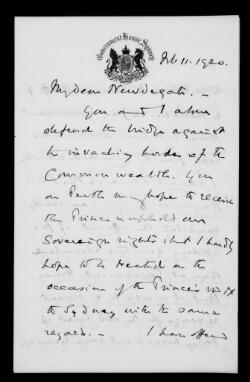 Government House, Sydney
Feb 11. 1920.
My dear Newdegate. –
You and I alone
defend the bridge against
the invading hordes of the
Commonwealth. You
at Perth may hope to receive
the Prince & uphold our
Sovereign rights but I hardly
hope to be treated on the
occasion of the Prince's visit
to Sydney with the same
regard. – I have